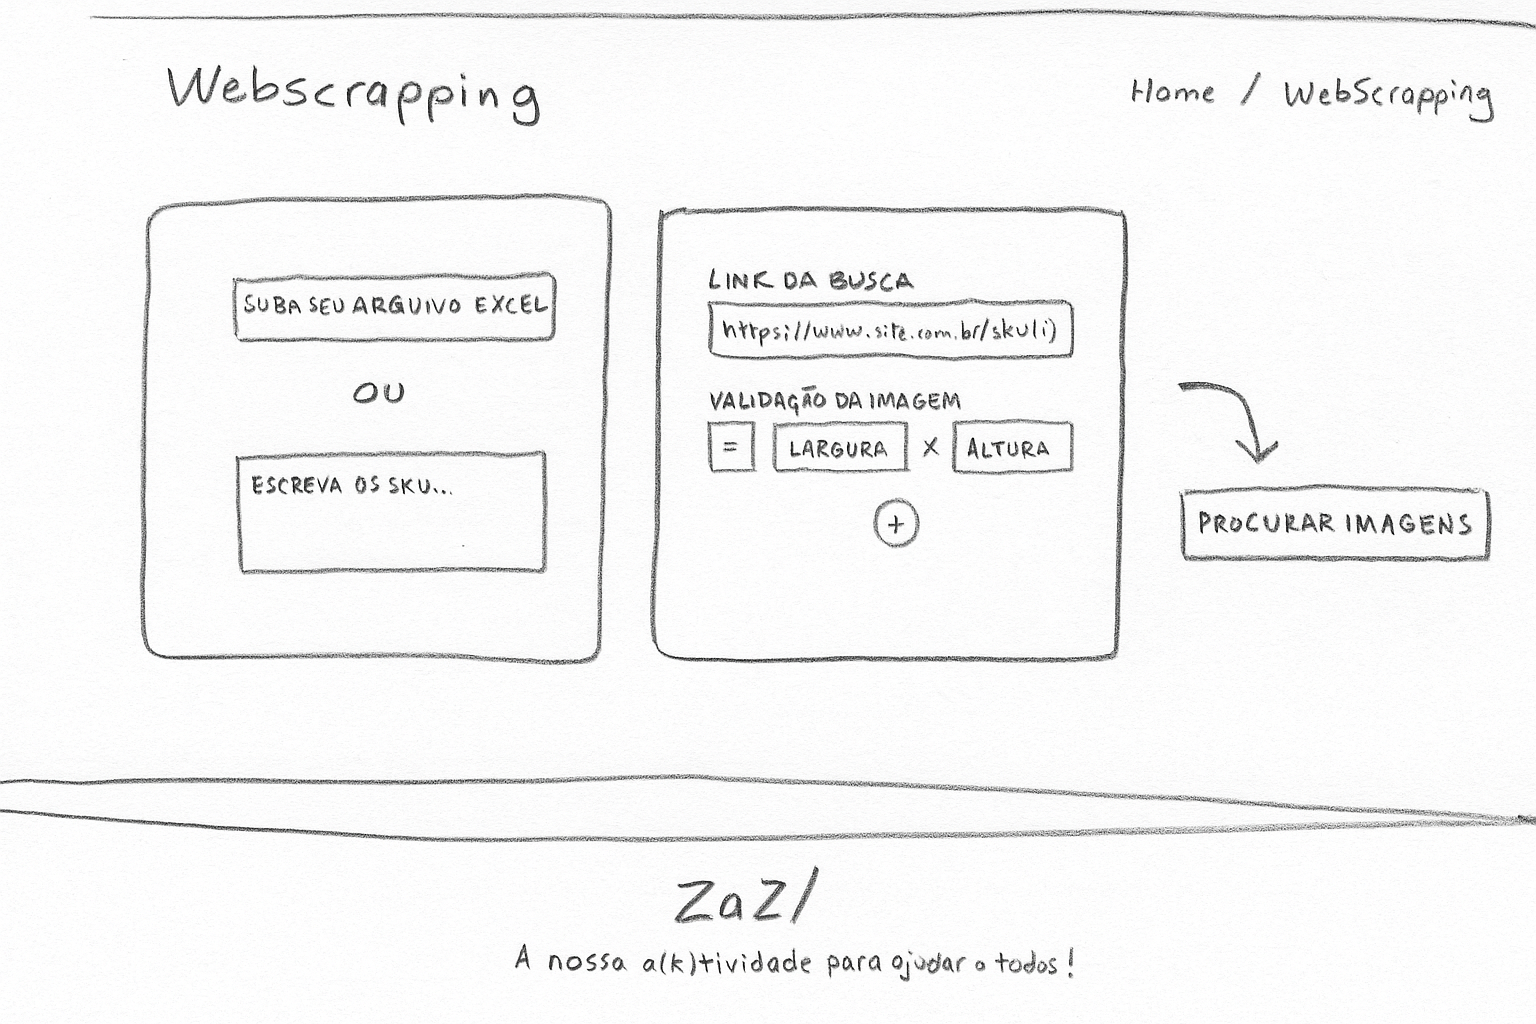 Webscrapping
Home / WebScrapping
SUBA SEU ARQUIVO EXCEL
OU
ESCREVA OS SKU...
LINK DA BUSCA
https://www.site.com.br/sku(i)
VALIDAÇÃO DA IMAGEM
= LARGURA x ALTURA
+
PROCURAR IMAGENS
ZaZ/
A nossa a(k)tividade para ajudar a todos!